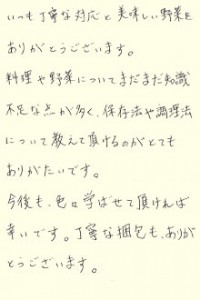 いつも丁寧な対応と美味しい野菜を
ありがとうございます。
料理や野菜についてまだまだ知識
不足な点が多く、保存法や調理法
について教えて頂けるのがとても
ありがたいです。
今後も、色々学ばせて頂ければ
幸いです。丁寧な梱包も、ありが
とうございます。